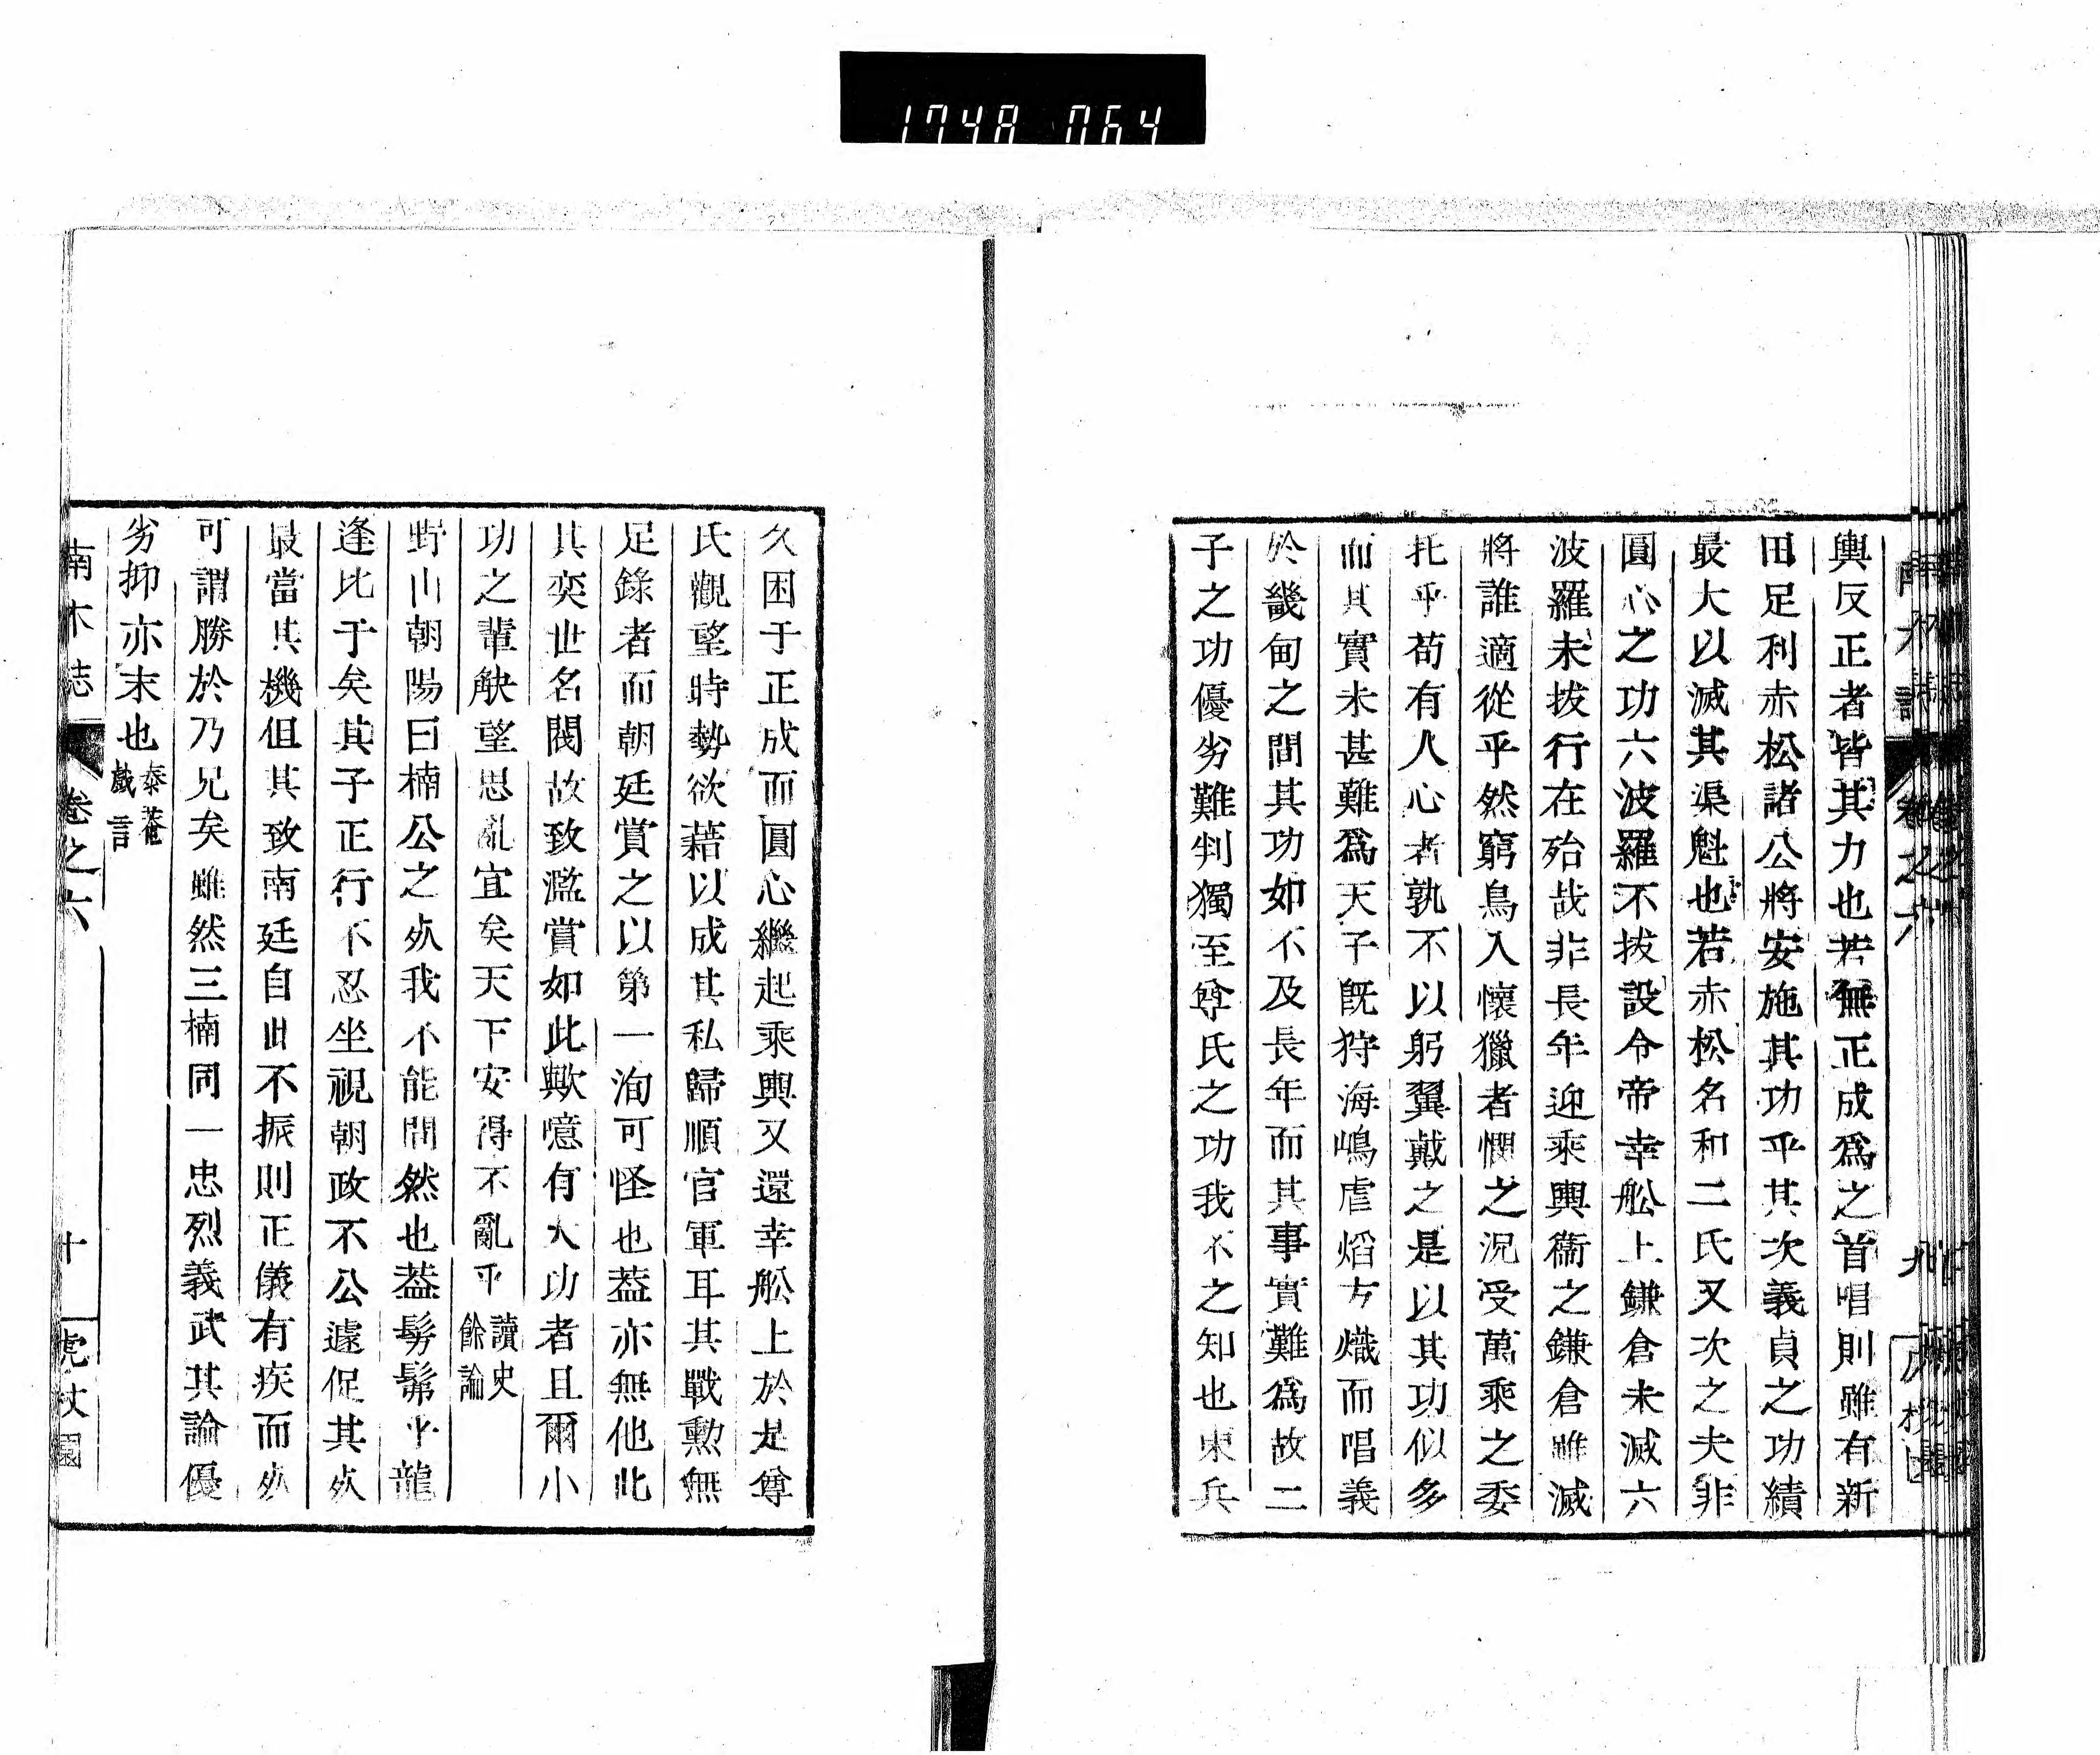 1748 064
輿反正者皆其力也若無正成爲之首唱則雖有新
田足利赤松諸公將安施其功乎其次義貞之功績
最大以滅其渠魁也若赤松名和二氏又次之夫非
圓心之功六波羅不拔設令帝幸舩上鎌倉未滅六
波羅未拔行在殆哉非長年迎乘輿衞之鎌倉雖滅
將誰適從乎然窮鳥入懷獵者憫之況受萬乘之委
托乎苟有人心者孰不以躬翼戴之是以其功似多
而其實未甚難爲天子旣狩海嶋虐熖方熾而唱義
於畿甸之間其功如不及長年而其事實難爲故二
子之功優劣難判獨至尊氏之功我不之知也東兵
久困于正成而圓心繼起乘輿又還幸舩上於是尊
氏觀望時勢欲藉以成其私歸順官軍耳其戰勳無
足錄者而朝廷賞之以第一洵可怪也葢亦無他此
其奕世名閥故致濫賞如此歟噫有大功者且爾小
功之輩觖望思亂宜矣天下安得不亂乎讀史餘論
野山朝陽曰楠公之㱔我不能間然也葢髣髴乎龍
逢比于矣其子正行不忍坐視朝政不公遽促其㱔
最當其機但其致南廷自此不振則正儀有疾而㱔
可謂勝於乃兄矣雖然三楠同一忠烈義武其論優
劣抑亦末也泰菴戲言
南木誌 卷之六 十 虎杖園